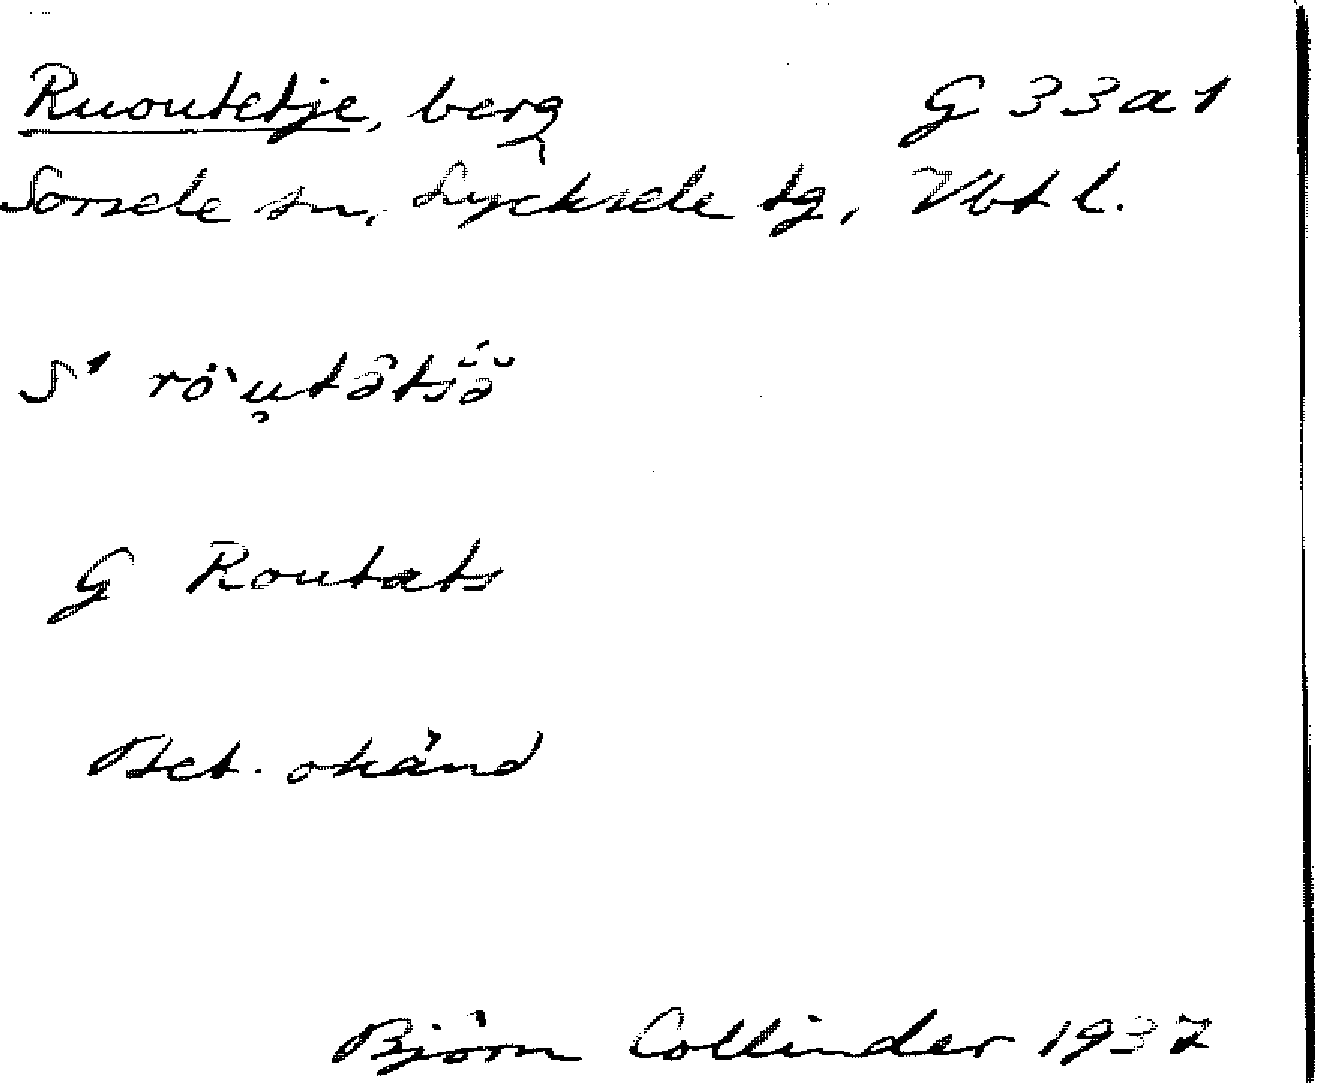 Ruoutetje, berg G 33a1
Sorsele sn, Lycksele tg, Vbt l.
S1
G Routats
Bet. okänd
Björn Collinder 1937